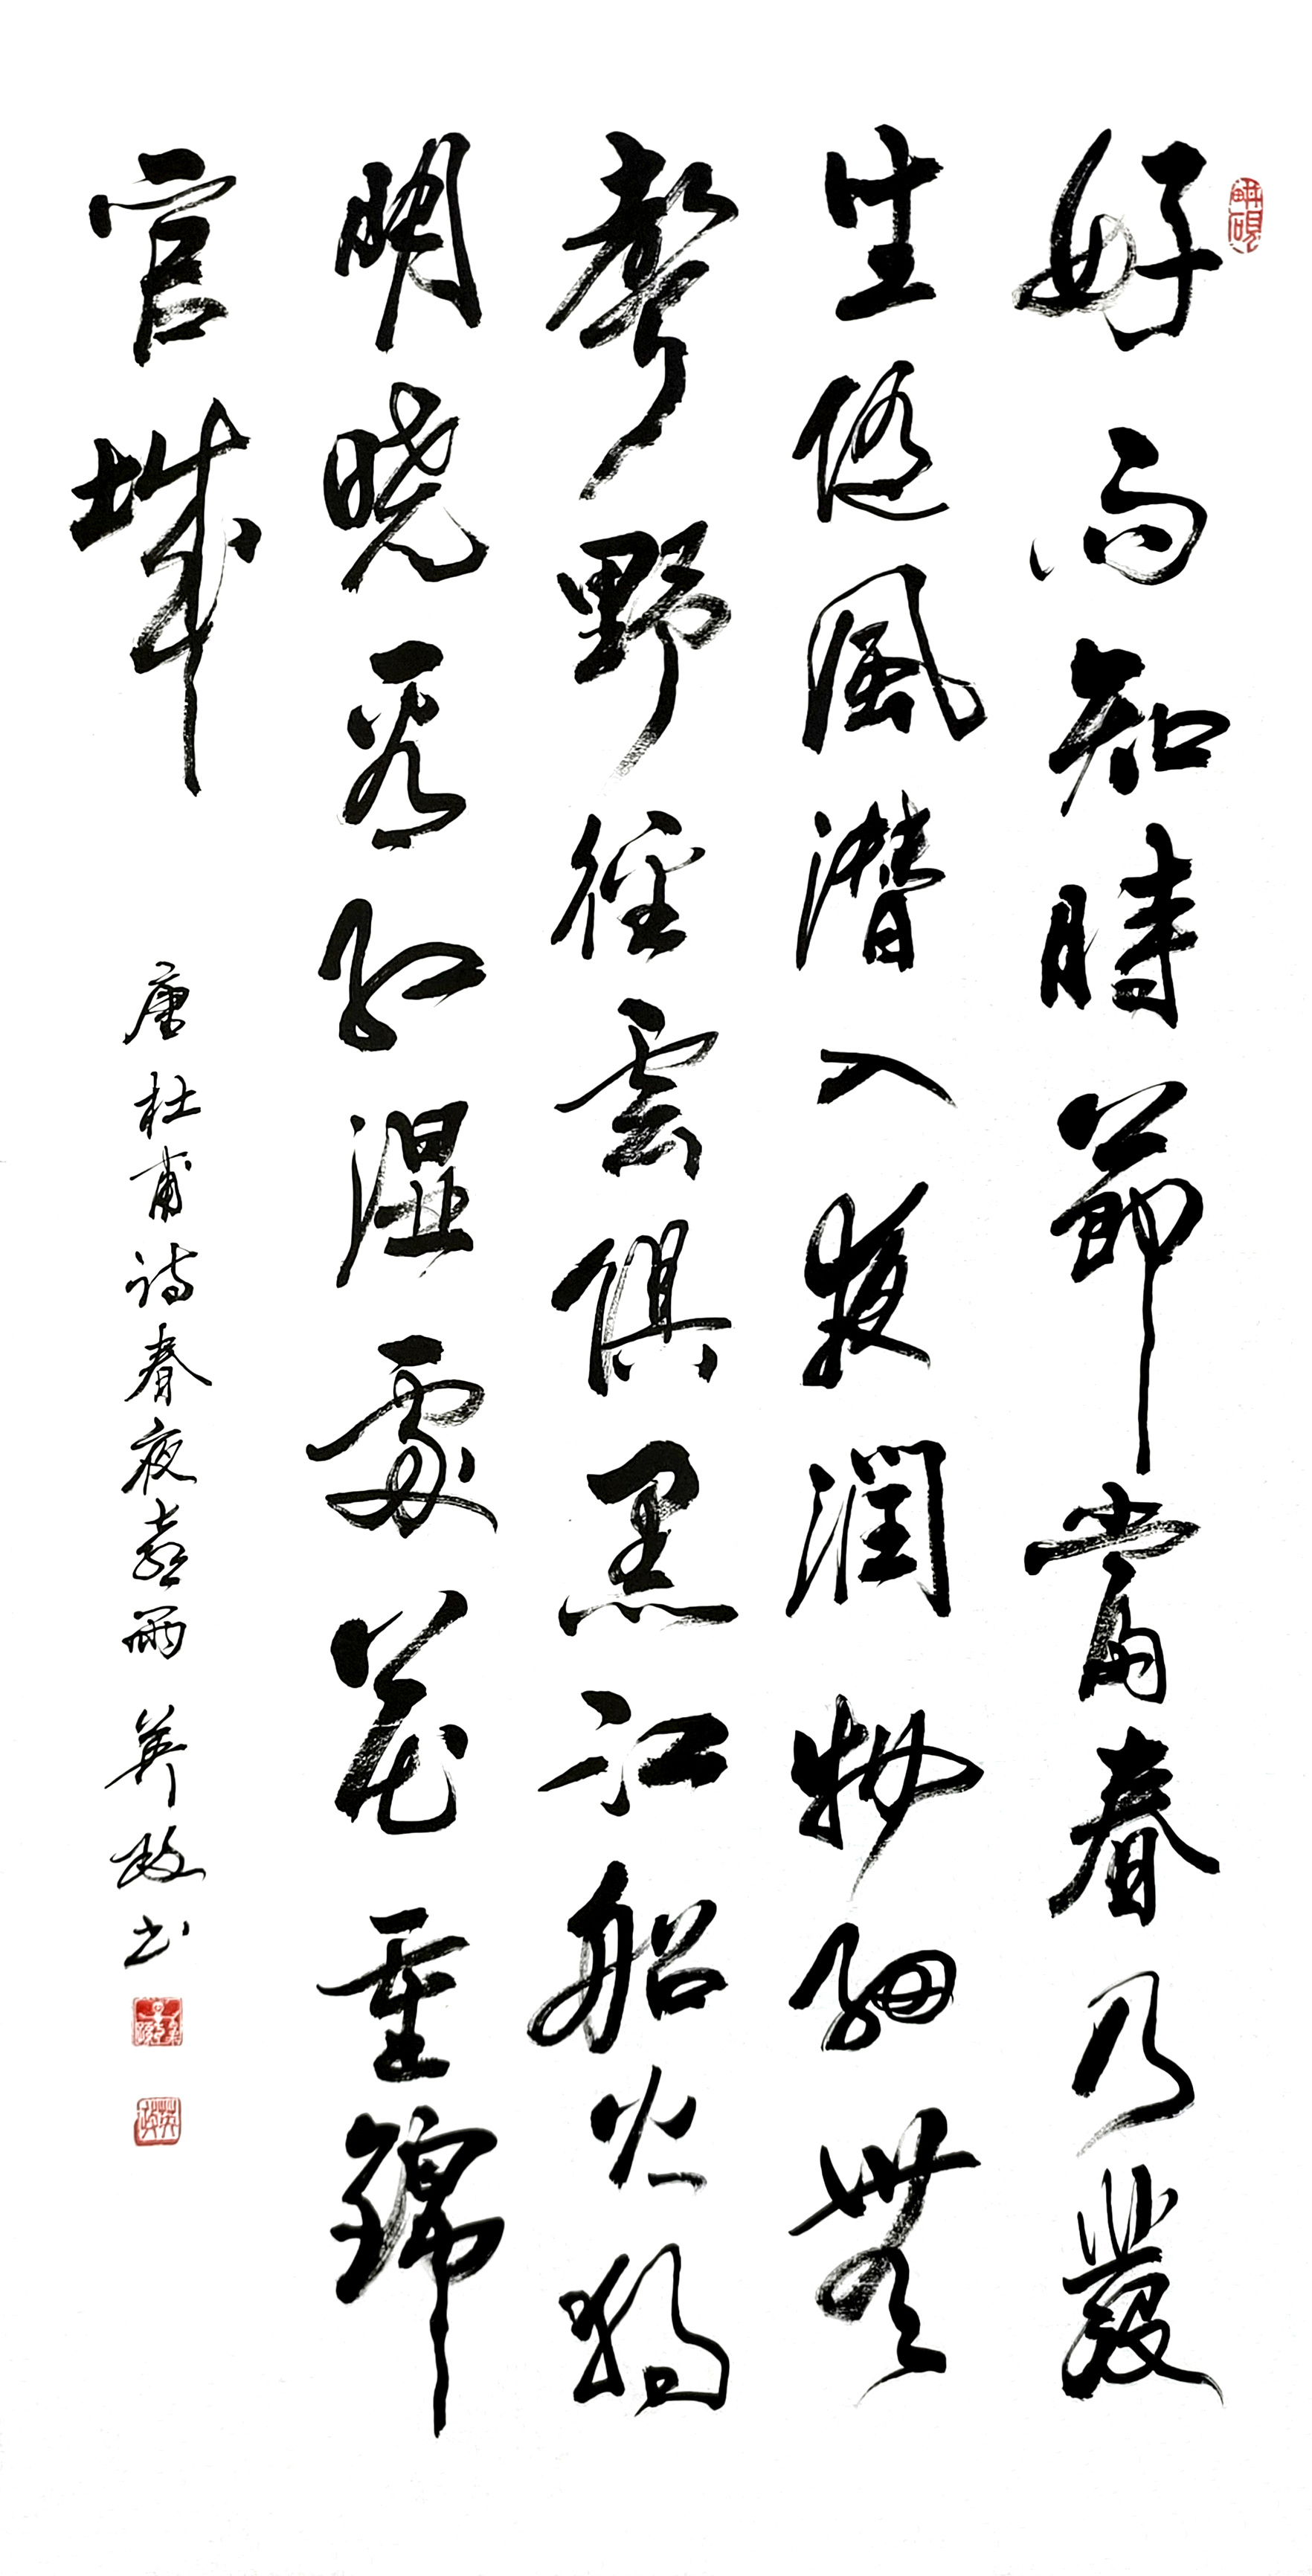 畊硯
好雨知時節當春乃發
生随風潜入夜潤物細無
聲野徑雲俱黑江船火獨
明曉看紅湿處花重錦
官城
唐杜甫诗春夜喜雨 英政书
英政